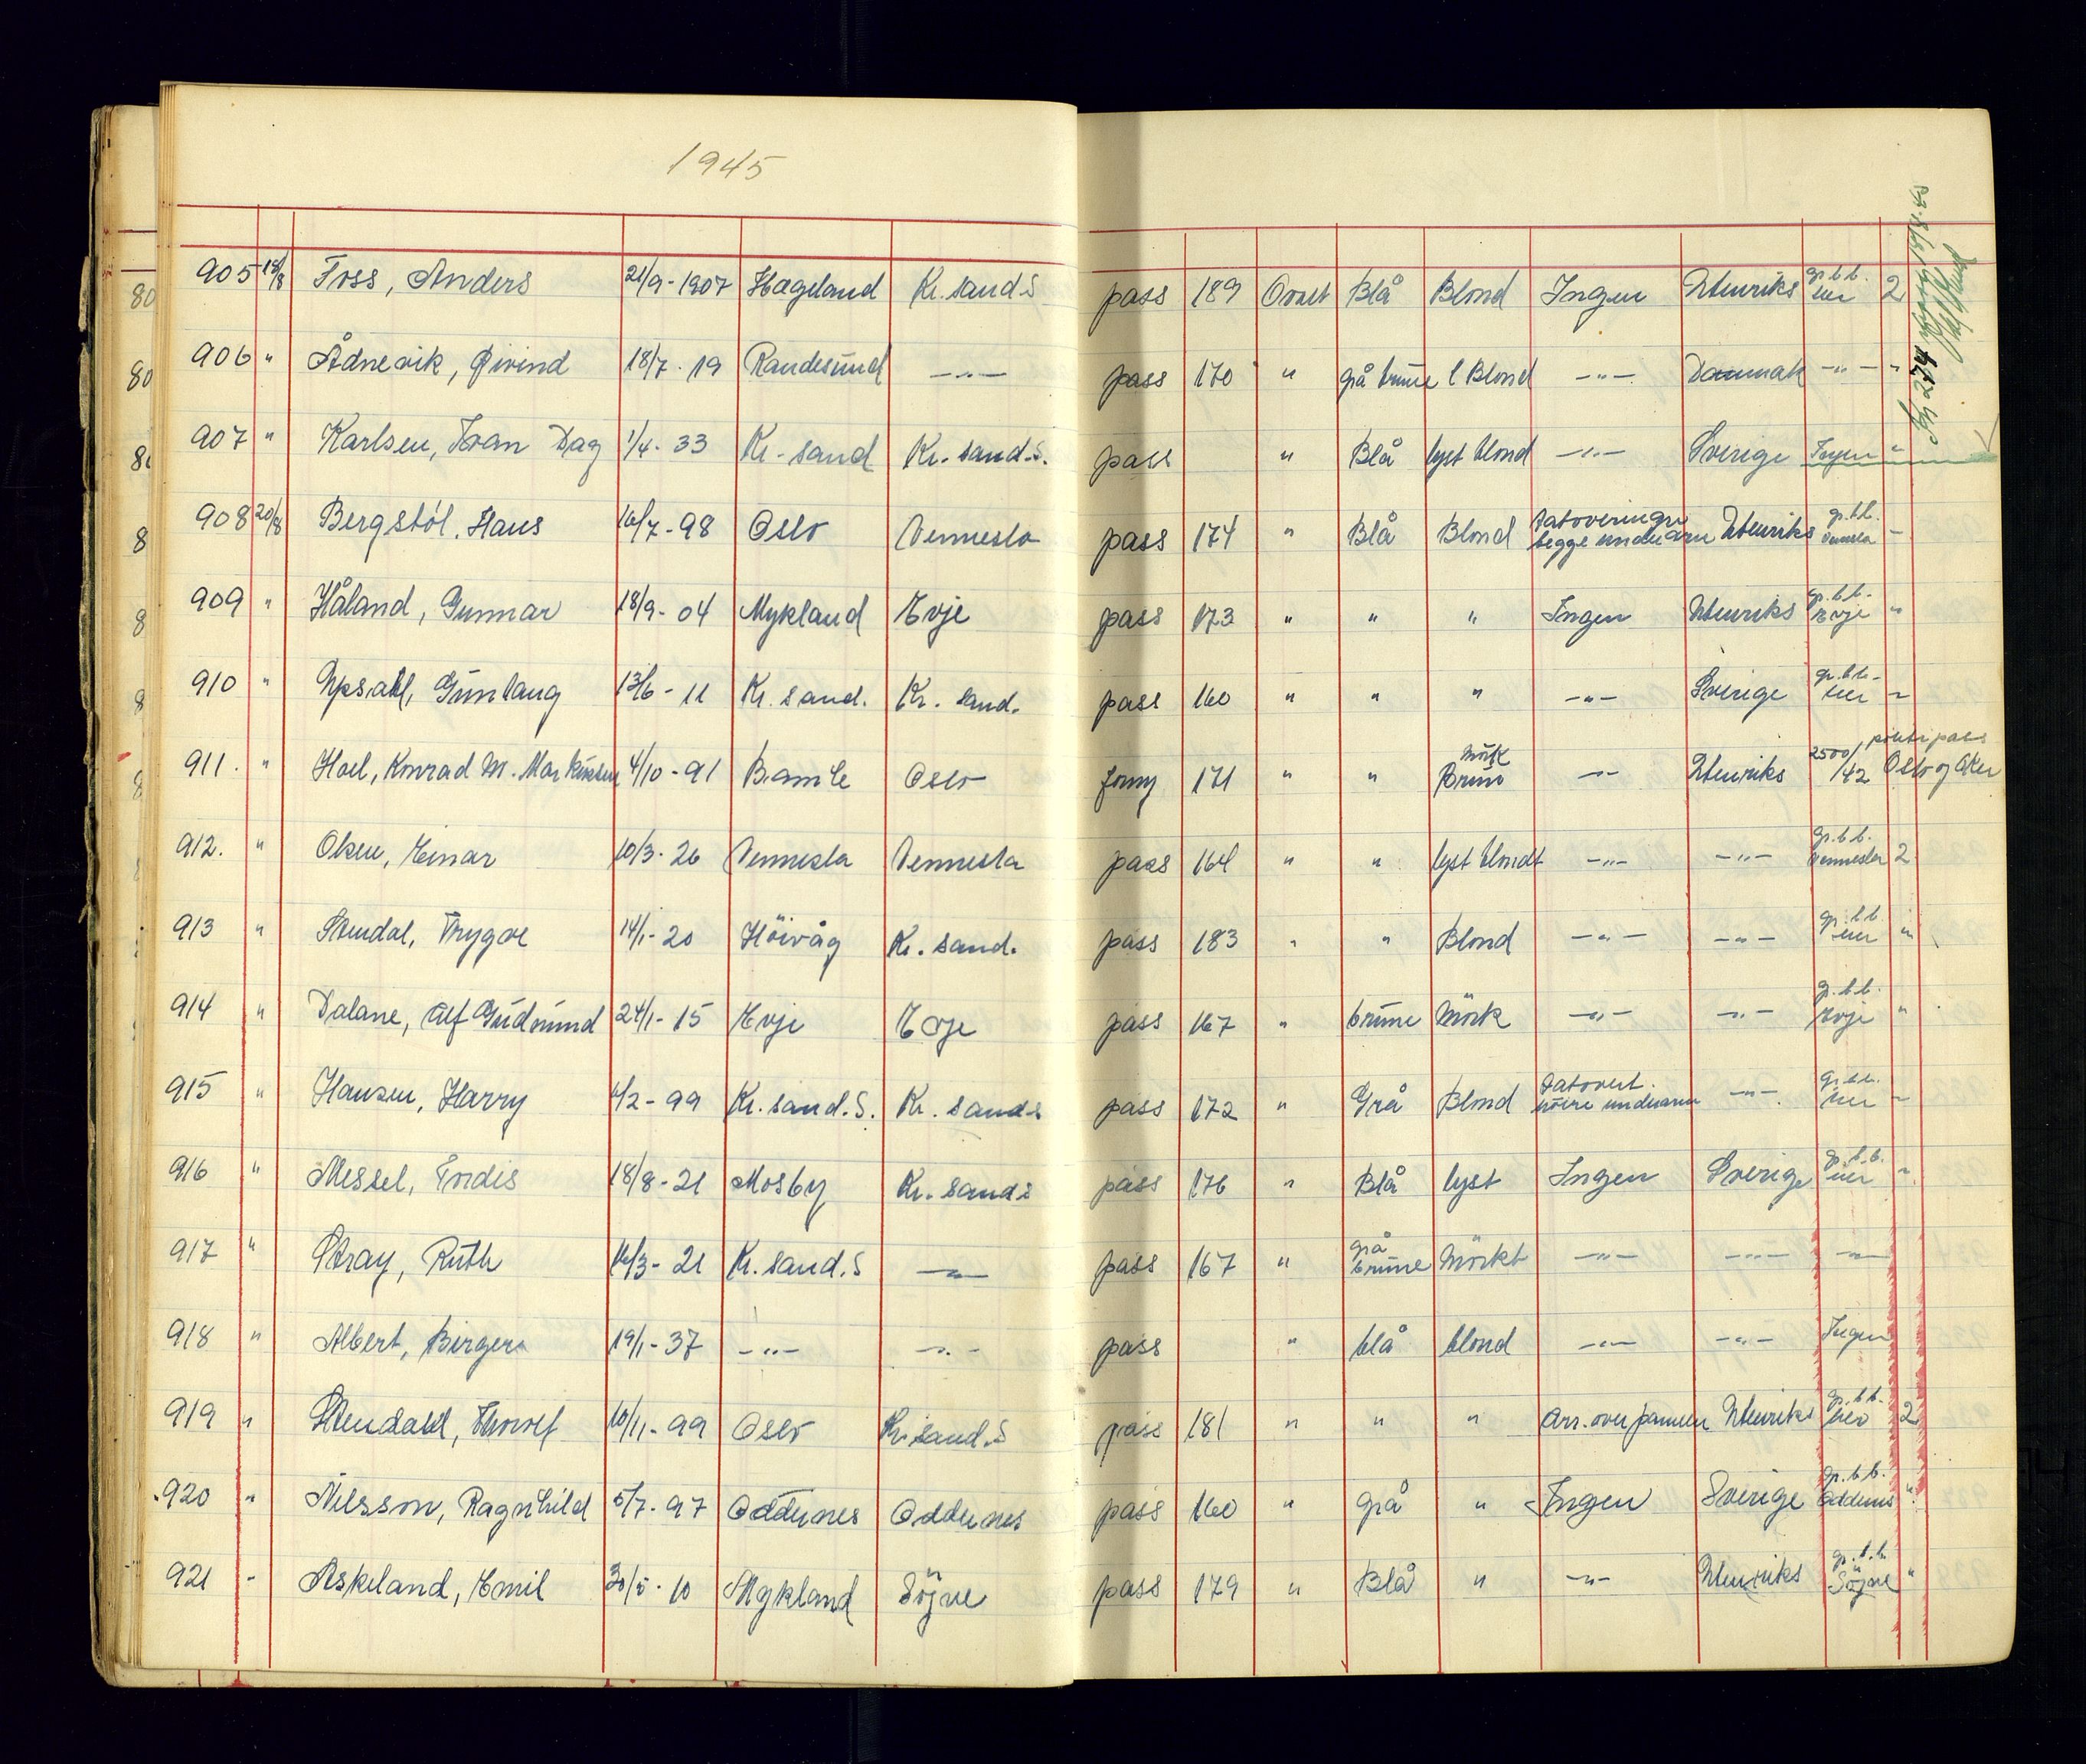 1945
905 18/8 Foss, Anders 21/9-1907 Hægeland Kr.sand S pass 189 Ovalt Blå Blond Ingen Utenriks gr.b.b. her 2
906 " Ådnevik, Øivind 18/7-19 Randesund —"— pass 170 " grå brune l Blond —"— Danmak —"— "
907 " Karlsen, Ivan Dag 1/4-33 Kr.-sand Kr.-sand.S. pass " Blå lyst blond —"— Sverige Ingen "
908 20/8 Bergstöl, Hans 16/7-98 Oslo Vennesla pass 174 " Blå Blond Tatoveringer begge underarm Utenriks gr.b.b. Vennesla "
909 " Håland, Gunnar 18/9-04 Mykland Evje pass 173 " " " Ingen Utenriks gr.b.b. Evje "
910 " Upsahl, Gunlaug 13/6-11 Kr.sand. Kr. sand. pass 160 " " " —"— Sverige gr.b.b. her "
911. " Hoel, Konrad M. Markussen 4/10-91 Bamle Oslo 171 " " Mörk Brun —"— Utenriks 2500/42 politi pass Oslo og Aker
912. " Olsen, Einar 10/3-26 Vennesla Vennesla pass 164 " " lyst blondt —"— —"— gr.b.b. Vennesla 2
913 " Stendal, Trygve 14/1-20 Höivåg Kr.sand. pass 183 " " Blond —"— —"— gr.b.b. her "
914 " Dalane, Alf Gudmund 24/1-15 Evje Evje pass 167 " brune Mörk —"— —"— gr.b.b. Evje "
915 " Hansen, Harry 6/2-99 Kr.sand.S. Kr. sand S pass 172 " Grå Blond Tatovert. höire underarm —"— gr.b.b. her "
916 " Messel, Tordis 18/8-21 Mosby Kr.sand S pass 176 " Blå lyst Ingen Sverige gr.b.b. her "
917 " Stray, Ruth 16/3-21 Kr.sand.S —"— pass 167 " grå brune Mörkt —"— —"— —"—
918 " Albert, Birger 19/1-37 —"— —"— pass " blå blond —"— —"— Ingen
919 " Stendahl, Thorolf 10/11-99 Oslo Kr.sand.S pass 181 " " " Arr.over pannen Utenriks gr.b.b. her 2
920 " Nilsson, Ragnhild 5/7-97 Oddernes Oddernes pass 160 " grå " Ingen Sverige gr.b.b. Oddernes "
921 " Askeland, Emil 30/5-10 Mykland Söjne pass 179 " Blå " —"— Utenriks gr.b.b. Söjne "